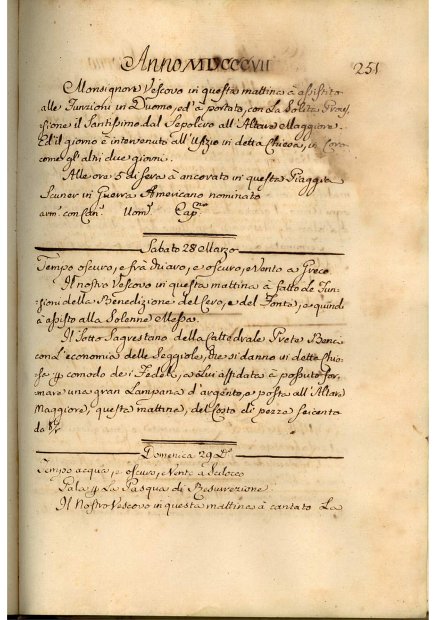 Anno MDCCCVII
251
Monsignore Vescovo in questa mattina à assistito
alle Funzioni in Duomo, ed à portato, con la Solita Proces
sione il Santissimo dal Sepolcro all'Altare Maggiore.
Ed il giorno è intervenuto all'Ufizio in detta Chiesa, in Coro
come gli altri due giorni.
Alle ore 5 di sera à ancorato in questa Piaggia
Scuner in Guerra Americano nominato
arm. con Can. Uom. Cap.no
Sabato 28 Marzo
Tempo oscuro, e frà du aro, e oscuro, e Vento a Greco
Il nostro Vescovo in questa mattina à fatto le Fun-
zioni della Benedizione del Cero, e del Fonte, e quindi
à assisto alla Solenne Messa.
Il Sotto Sagrestano della Cattedrale Prete Bena
con l'economia delle Seggiole, che si danno in detta Chie-
sa p comodo de i Fedeli, e a Lui affidata à possuto for-
mare una gran Lampana d'argento, e posta all'Altare
Maggiore, questa mattina, del Costo di pezze seicento
da 8/r
Domenica 29 D.o
Tempo acqua, e oscuro, Vento a Scilocco
Gala p La Pasqua di Resurrezione
Il Nostro Vescovo in questa mattina à cantato La